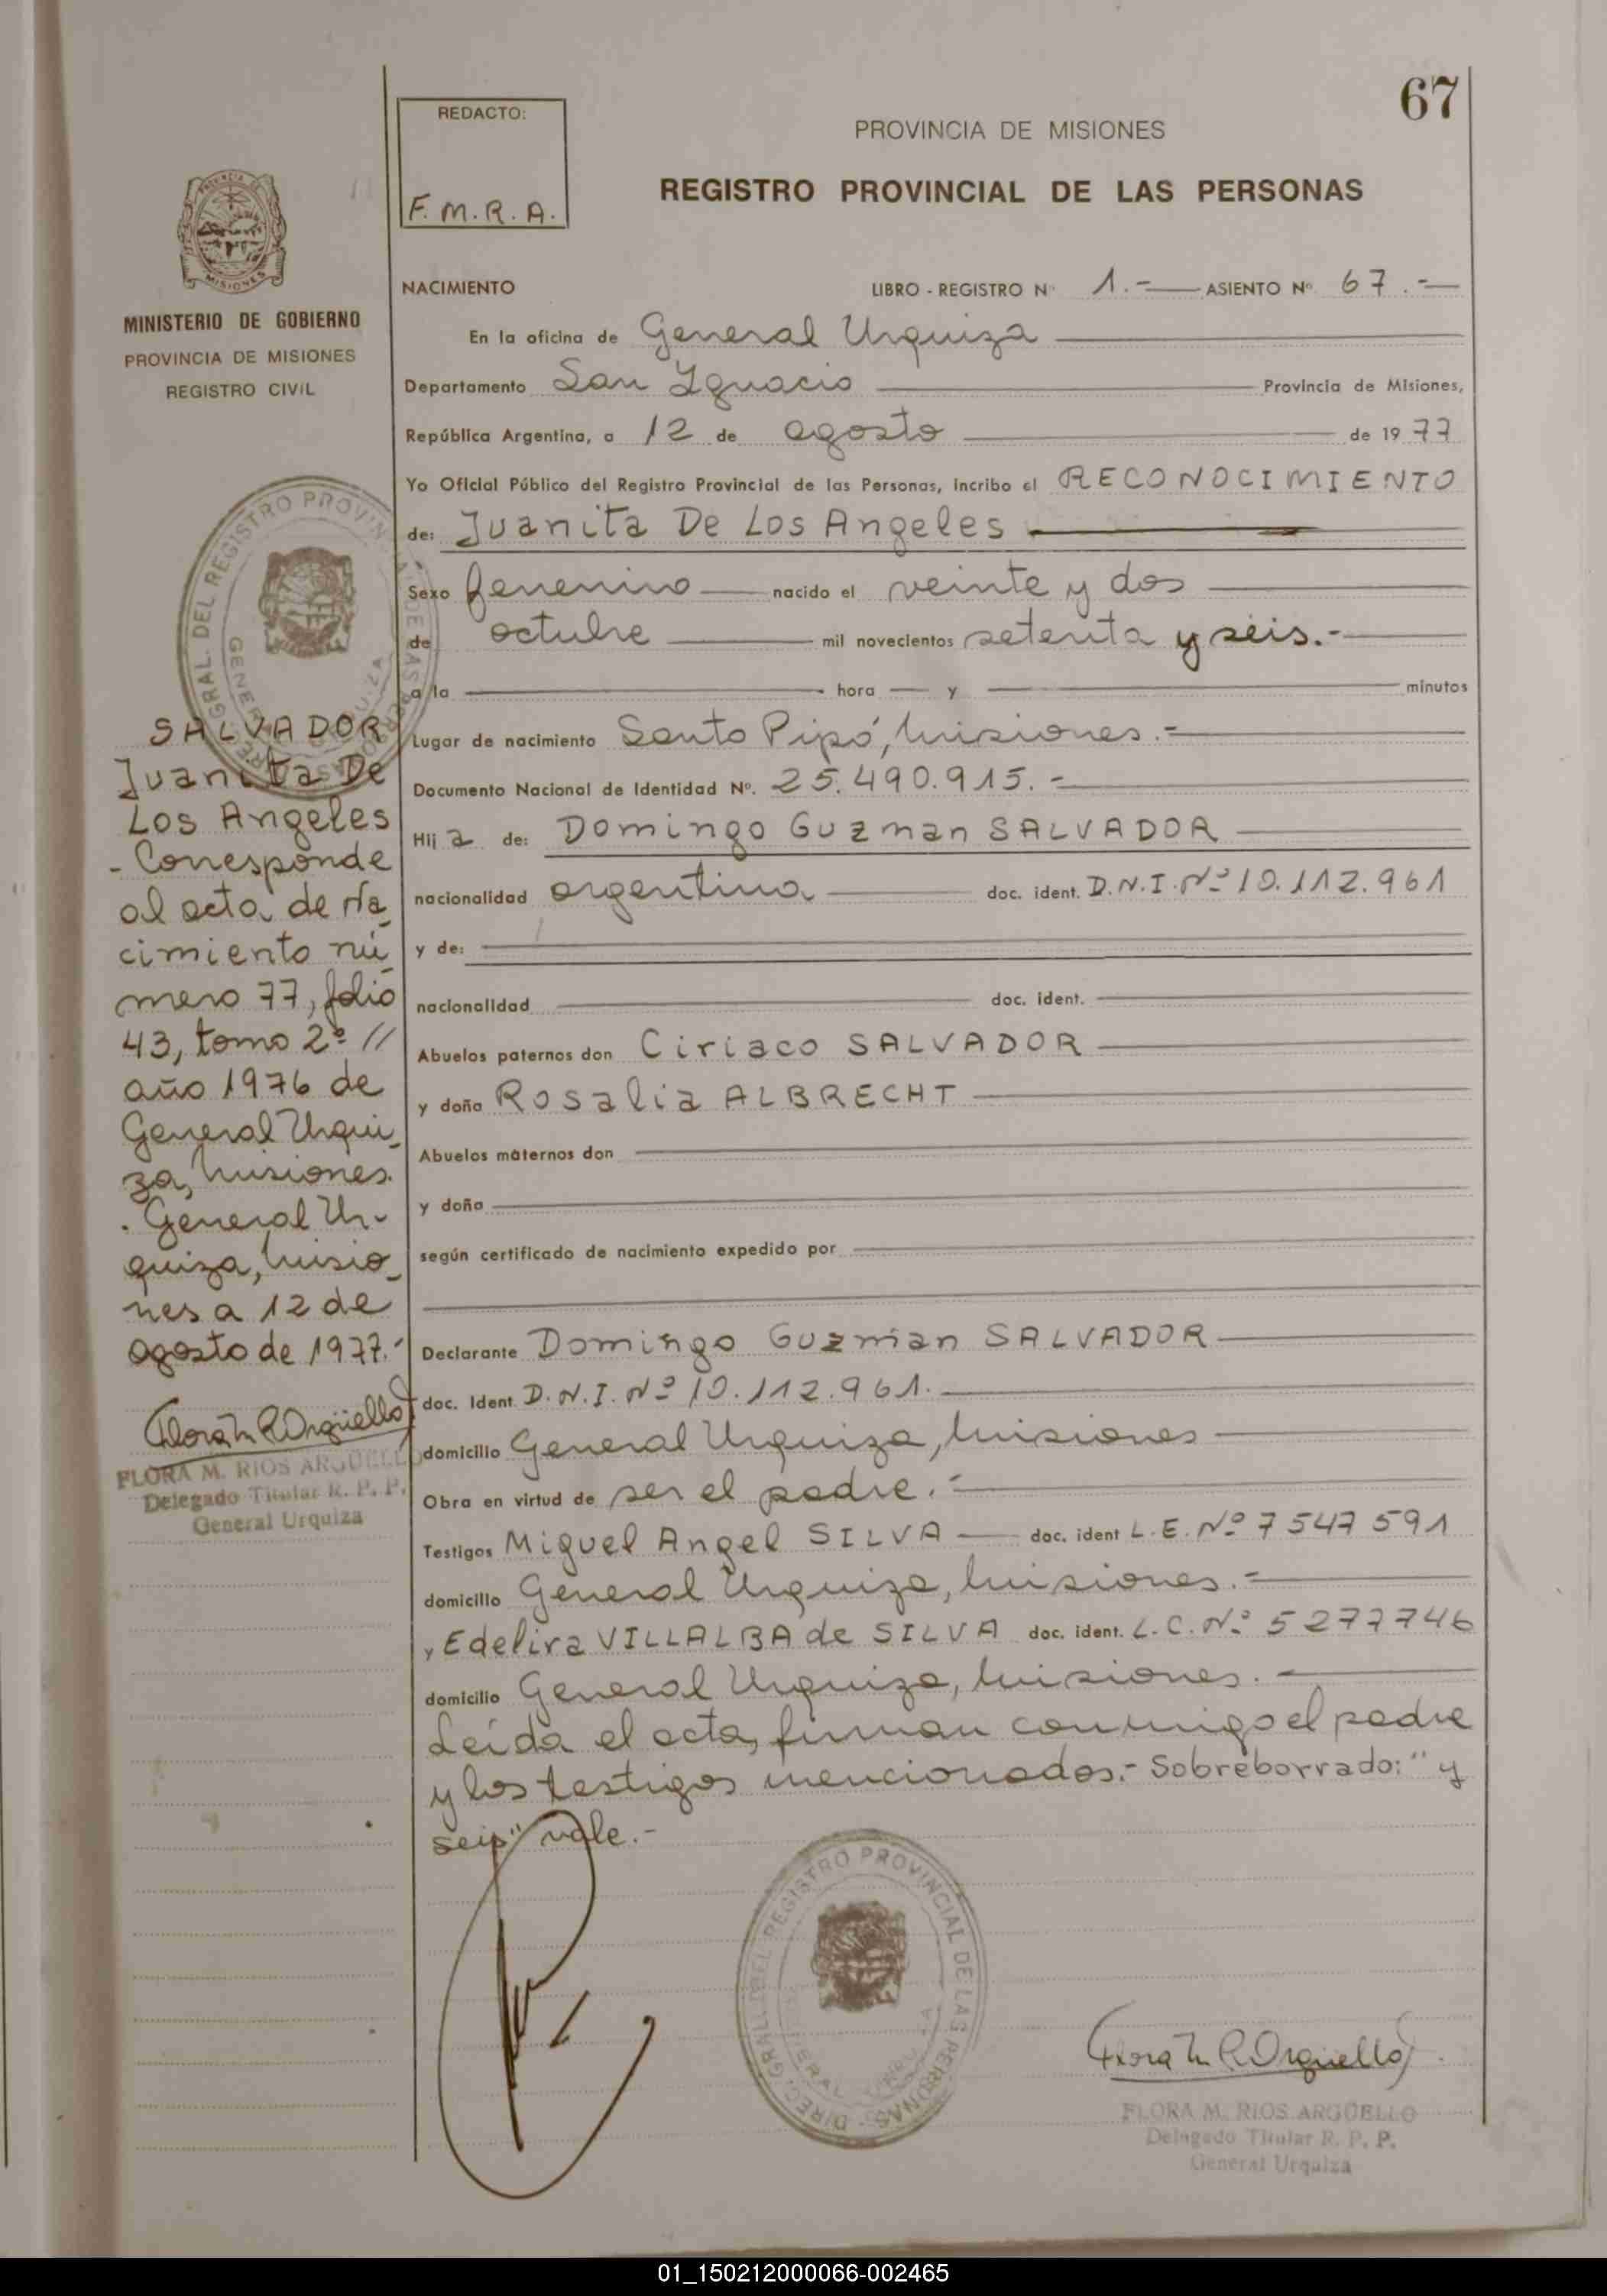 67
REDACTO:
F.M.R.A.
PROVINCIA DE MISIONES
REGISTRO PROVINCIAL DE LAS PERSONAS
MISIONES
MINISTERIO DE GOBIERNO
PROVINCIA DE MISIONES
REGISTRO CIVIL
NACIMIENTO LIBRO - REGISTRO Nº 1.- ASIENTO Nº 67.-
En la oficina de General Urquiza
Departamento San Ygnacio Provincia de Misiones,
República Argentina, a 12 de agosto de 1977
Yo Oficial Público del Registro Provincial de las Personas, incribo el RECONOCIMIENTO
de: Juanita De Los Angeles
Sexo femenino nacido el veinte y dos
de octubre mil novecientos setenta y seis.-
a la hora y minutos
Lugar de nacimiento Santo Pipó, Misiones.-
Documento Nacional de Identidad Nº. 25.490.915.-
Hij a de: Domingo Guzman SALVADOR
nacionalidad argentina doc. ident. D.N.I. Nº 10.112.961
y de:
nacionalidad doc. ident.
Abuelos paternos don Ciriaco SALVADOR
y doña Rosalia ALBRECHT
Abuelos maternos don
y doña
según certificado de nacimiento expedido por
Declarante Domingo Guzman SALVADOR
doc. Ident. D.N.I. Nº 10.112.961.
domicilio General Urquiza, Misiones
Obra en virtud de ser el padre.-
Testigos Miguel Angel SILVA doc. ident L.E. Nº 7547591
domicilio General Urquiza, Misiones.-
y Edelira VILLALBA de SILVA doc. ident. L.C. Nº 5277746
domicilio General Urquiza, Misiones.-
Leída el acta, firman conmigo el padre
y los testigos mencionados.- Sobreborrado: "y
seis" vale.-
SALVADOR
Juanita De
Los Angeles
- Corresponde
al acta de Na
cimiento nú
mero 77, folio
43, tomo 2º //
año 1976 de
General Urqui
za, Misiones.
. General Ur-
quiza, Misio
nes a 12 de
agosto de 1977.-
Flora M R Argüello
FLORA M. RIOS ARGÜELLO
Delegado Titular R. P. P.
General Urquiza
DIREC. GRAL. DEL REGISTRO PROVINCIAL DE LAS PERSONAS
Flora M R Argüello
FLORA M. RIOS ARGÜELLO
Delegado Titular R. P. P.
General Urquiza
01_150212000066-002465